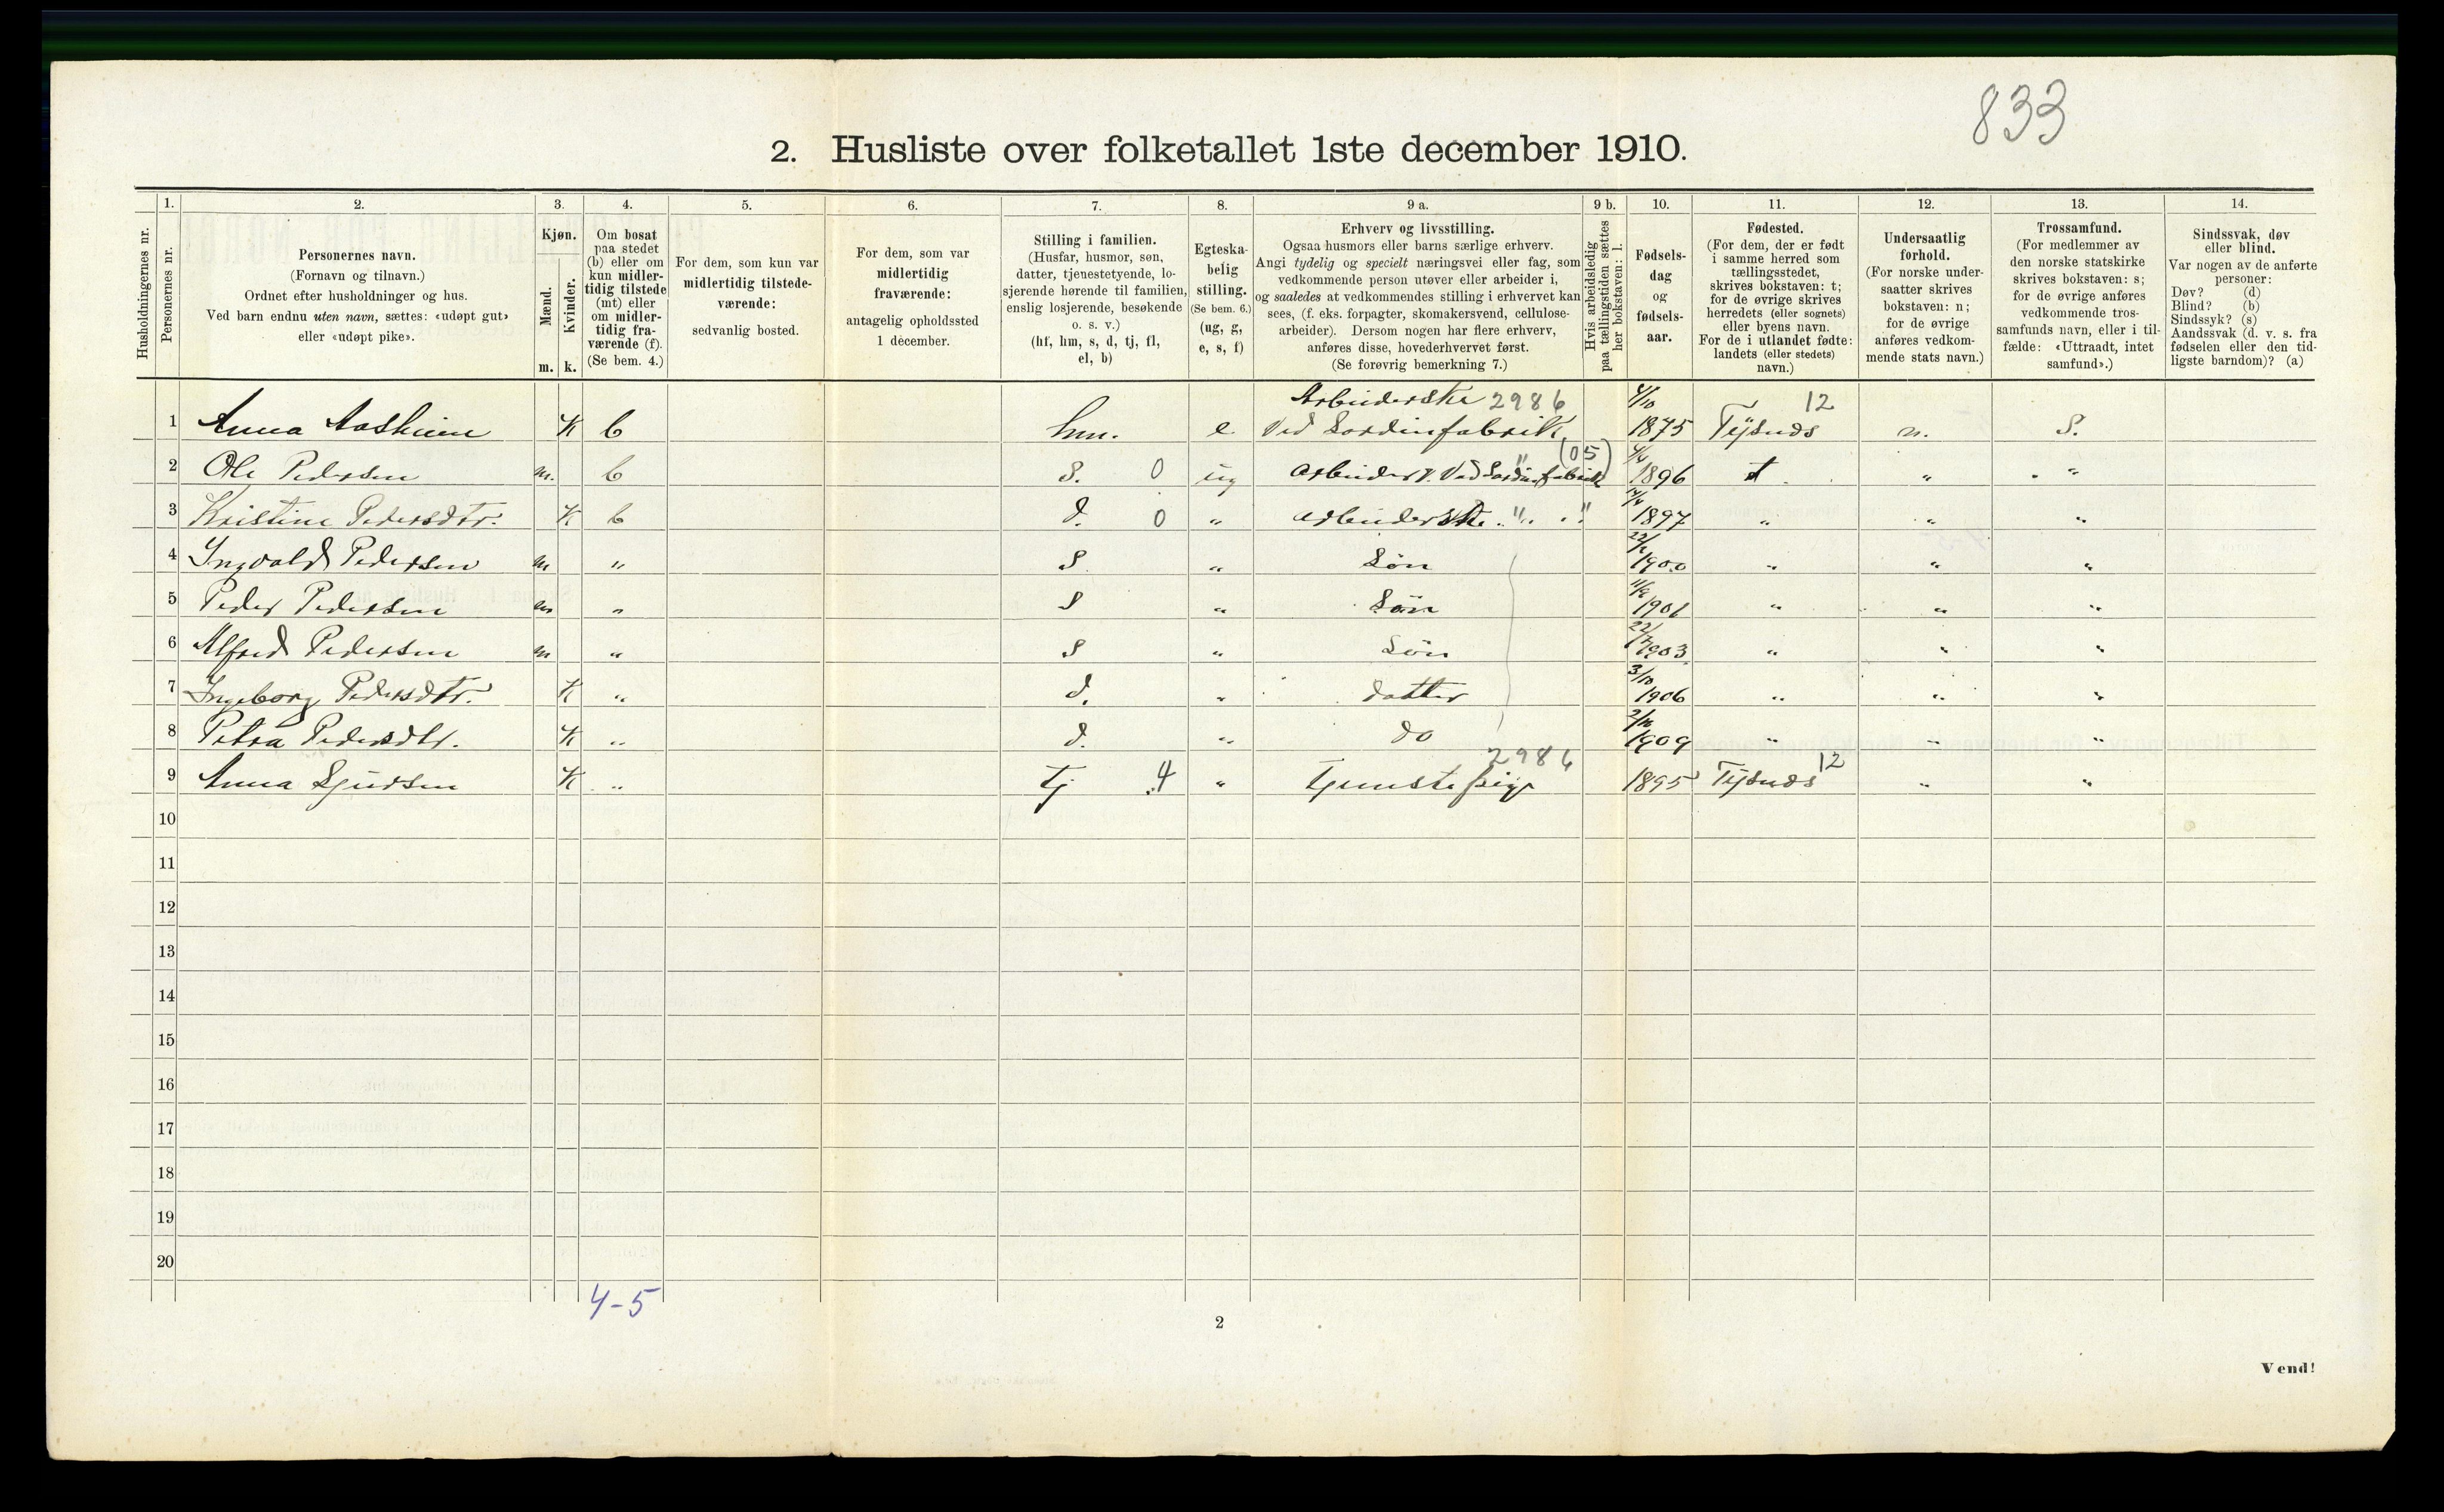 833
2. Husliste over folketallet 1ste december 1910.
Husholdningernes nr.
1. Personernes nr.
2. Personernes navn.
(Fornavn og tilnavn.)
Ordnet efter husholdninger og hus.
Ved barn endnu uten navn, sættes: «udøpt gut»
eller «udøpt pike».
3. Kjøn.
Mænd. m.
Kvinder. k.
4. Om bosat
paa stedet
(b) eller om
kun midler-
tidig tilstede
(mt) eller
om midler-
tidig fra-
værende (f).
(Se bem. 4.)
5. For dem, som kun var
midlertidig tilstede-
værende:
sedvanlig bosted.
6. For dem, som var
midlertidig
fraværende:
antagelig opholdssted
1 december.
7. Stilling i familien.
(Husfar, husmor, søn,
datter, tjenestetyende, lo-
sjerende hørende til familien,
enslig losjerende, besøkende
o. s. v.)
(hf, hm, s, d, tj, fl,
el, b)
8. Egteska-
belig
stilling.
(Se bem. 6.)
(ug, g,
e, s, f)
9 a. Erhverv og livsstilling.
Ogsaa husmors eller barns særlige erhverv.
Angi tydelig og specielt næringsvei eller fag, som
vedkommende person utøver eller arbeider i,
og saaledes at vedkommendes stilling i erhvervet kan
sees, (f. eks. forpagter, skomakersvend, cellulose-
arbeider). Dersom nogen har flere erhverv,
anføres disse, hovederhvervet først.
(Se forøvrig bemerkning 7.)
9 b. Hvis arbeidsledig
paa tællingstiden sættes
her bokstaven: l.
10. Fødsels-
dag
og
fødsels-
aar.
11. Fødested.
(For dem, der er født
i samme herred som
tællingsstedet,
skrives bokstaven: t;
for de øvrige skrives
herredets (eller sognets)
eller byens navn.
For de i utlandet fødte:
landets (eller stedets)
navn.)
12. Undersaatlig
forhold.
(For norske under-
saatter skrives
bokstaven: n;
for de øvrige
anføres vedkom-
mende stats navn.)
13. Trossamfund.
(For medlemmer av
den norske statskirke
skrives bokstaven: s;
for de øvrige anføres
vedkommende tros-
samfunds navn, eller i til-
fælde: «Uttraadt, intet
samfund».)
14. Sindssvak, døv
eller blind.
Var nogen av de anførte
personer:
Døv? (d)
Blind? (b)
Sindssyk? (s)
Aandssvak (d. v. s. fra
fødselen eller den tid-
ligste barndom)? (a)
Arbeiderske 2986 4/10 12
1 Anna Aasheim K b hm. e Ved Sardinfabrik 1875 Tysnes n. S.
2 Ole Pedersen m. b S. 0 ug Arbeider Ved Sardinfabrik (05) 1896 t " "
3 Kristine Pedersdtr. K b d. 0 " Arbeiderske " " 1897 " " "
4 Ingvald Pedersen m " S. " Søn 1900 " " "
5 Peder Pedersen m " S " Søn 1901 " " "
6 Alfred Pedersen m " S " Søn 1903 " " "
7 Ingeborg Pedersdtr. K " d. " datter 3/10 1906 " " "
8 Petra Pedersdtr. K " d. " do 1909 " " "
2986 12
9 Anna Sjursen K " tj 4 " Tjenestepige 1895 Tysnes " "
10
11
12
13
14
15
16
17
18
19
20
4-5
2
Vend!